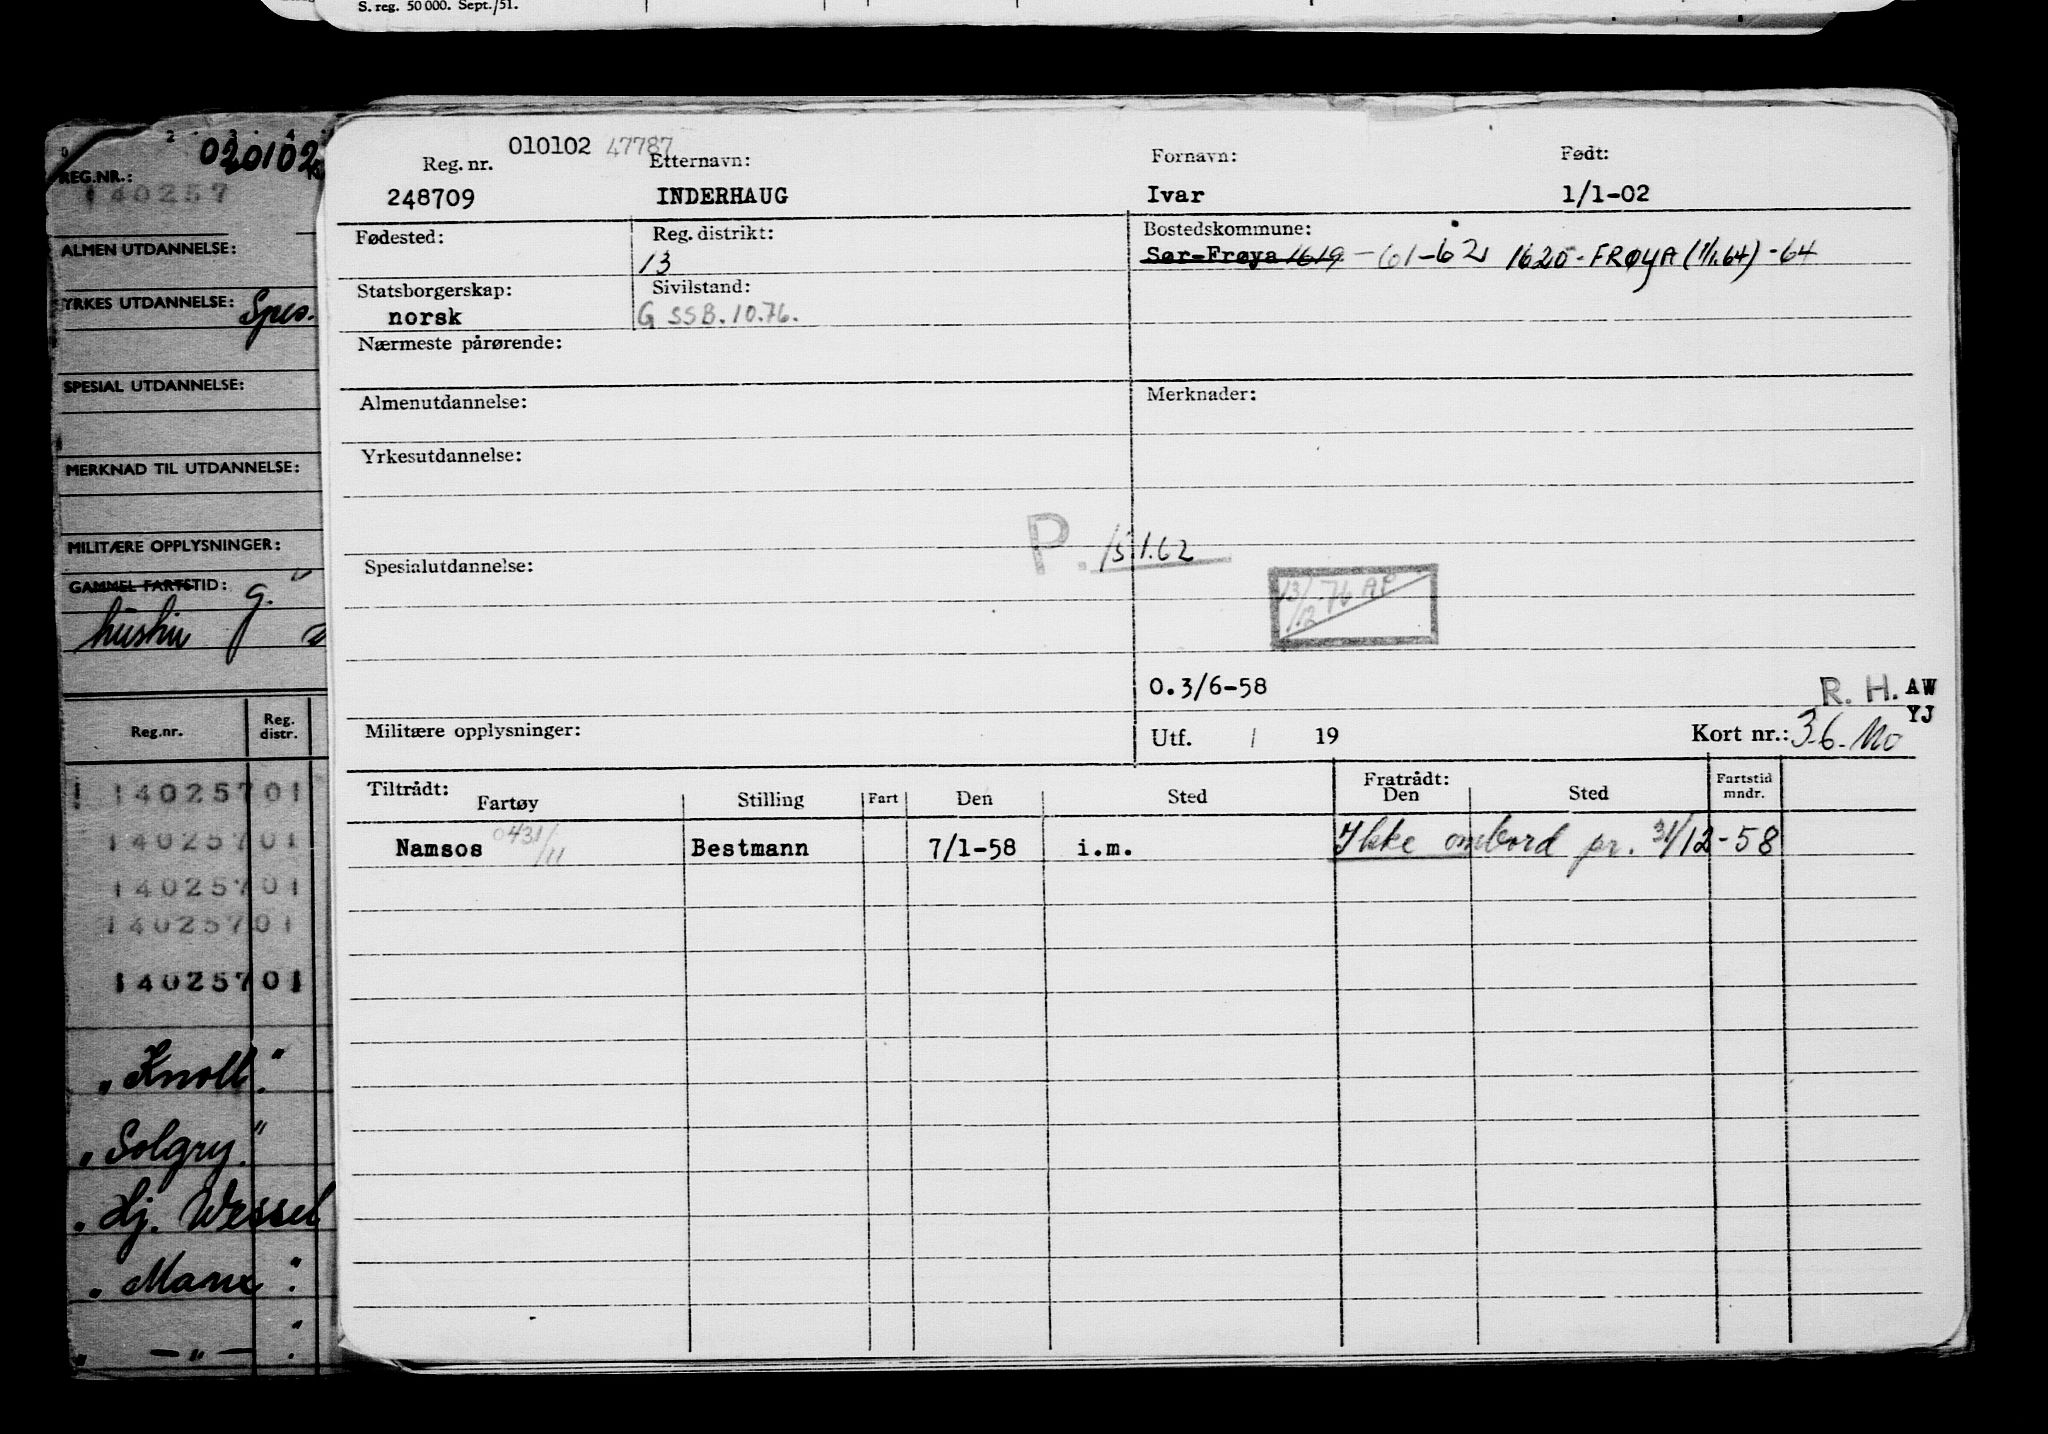 S. reg. 50 000. Sept./51.
020102
REG.NR.:
140257
ALMEN UTDANNELSE:
YRKES UTDANNELSE: Spes.
SPESIAL UTDANNELSE:
MERKNAD TIL UTDANNELSE:
MILITÆRE OPPLYSNINGER:
GAMMEL FARTSTID:
Reg.nr. Reg. distr.
14025701
14025701
14025701
14025701
14025701
"Knoll."
"Solgry."
" Hj. Wessel
" Manx "
" — " — "
010102 47787
Reg. nr. Etternavn: Fornavn: Født:
248709 INDERHAUG Ivar 1/1-02
Fødested: Reg. distrikt: Bostedskommune:
13 Sør-Frøya 1619 - 61-62 1620-FRØYA (1/1.64) -64
Statsborgerskap: Sivilstand:
norsk G SSB.10.76.
Nærmeste pårørende:
Almenutdannelse: Merknader:
Yrkesutdannelse:
P. 15.1.62
Spesialutdannelse:
13/12.76 AP
0.3/6-58
R. H. AW
YJ
Militære opplysninger: Utf. / 19 Kort nr.: 36. Mo
Tiltrådt: Fratrådt:
Fartøy Stilling Fart Den Sted Den Sted Fartstid mndr.
Namsos 0431/11 Bestmann 7/1-58 i.m. Ikke ombord pr. 31/12-58